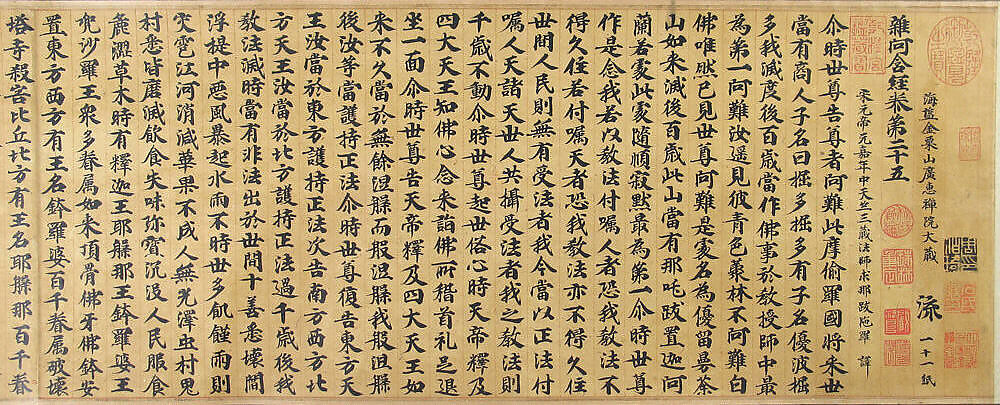 海鹽金粟山廣惠禪院大藏 流 一十一紙
雜阿含經卷第二十五
宋元帝元嘉年中天竺三藏法師求那跋陀羅 譯
尒時世尊告尊者阿難此摩偷羅國將來世
當有商人子名曰掘多掘多有子名優波掘
多我滅度後百歲當作佛事於教授師中最
為第一阿難汝遥見彼青色叢林不阿難白
佛唯然已見世尊阿難是處名為優留曼荼
山如來滅後百歲此山當有那吒跋置迦阿
蘭若處此處隨順寂默最為第一尒時世尊
作是念我若以教法付囑人者恐我教法不
得久住若付囑天者恐我教法亦不得久住
世間人民則無有受法者我今當以正法付
囑人天諸天世人共攝受法者我之教法則
千歲不動尒時世尊起世俗心時天帝釋及
四大天王知佛心念來詣佛所稽首礼足退
坐一面尒時世尊告天帝釋及四大天王如
來不久當於無餘涅槃而般涅槃我般涅槃
後汝等當護持正法尒時世尊復告東方天
王汝當於東方護持正法次告南方西方北
方天王汝當於北方護持正法過千歲後我
教法滅時當有非法出於世間十善悉壞閻
浮提中惡風暴起水雨不時世多飢饉雨則
灾雹江河消減華果不成人無光澤虫村鬼
村悉皆磨滅飲食失味珎寶沉没人民服食
麁澀草木時有釋迦王耶槃那王鉢羅婆王
兜沙羅王衆多眷属如来頂骨佛牙佛鉢安
置東方西方有王名鉢羅婆百千眷属破壞
塔寺殺害比丘北方有王名耶槃那百千眷